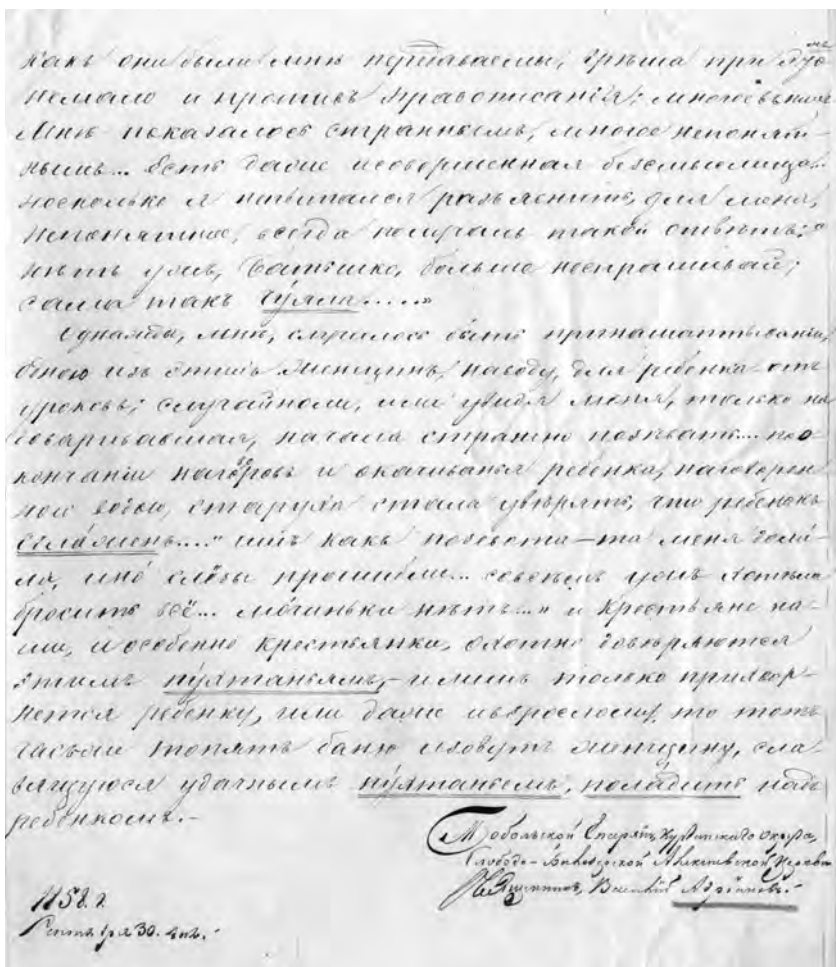 какъ они были мнѣ передаваемы, грѣша при
немало и противъ правописанія; многое
мнѣ показалось страннымъ, многое непонят-
нымъ... Есть даже и совершенная безсмыслица...
носколько я попытался разъяснить, для меня,
непонятное, всегда получалъ такой отвѣтъ:
нѣтъ ужъ, батюшко, больше неспрашивай;
сама такъ чуяла.....»
Однажды, мнѣ, случилось быть при нашоптываньи,
одною изъ этихъ женщинъ, наводу, для ребенка отъ
уроковъ; случайноли, или увидя меня, только на-
говаривавшая, начала странно позѣвать... по о-
кончаніи наговоровъ и окачиванья ребенка, наговорен-
ною водою, старуха стала увѣрять, что ребенокъ
.... ишь какъ позевота-та меня
ла, инно слёзы прошибли... совсѣмъ ужъ хотѣла
бросить всё... моченьки нѣтъ...» и крестьяне на-
ши, и особенно крестьянки, охотно довѣряются
этимъ пухтаньямъ,- и лишь только прихвор-
нетъ ребенку, или даже и взрослому, то тотъ
часъ топятъ баню и зовутъ женщину, сла-
вящуюся удачнымъ пухтаньемъ, поладить надъ
ребенкомъ.-
Тобольской Епархіи, Курганскаго округа,
Слободо- Алексѣевской Церкви
Священникъ, Василій Адріановъ.-
58. г.
Сентября 30.